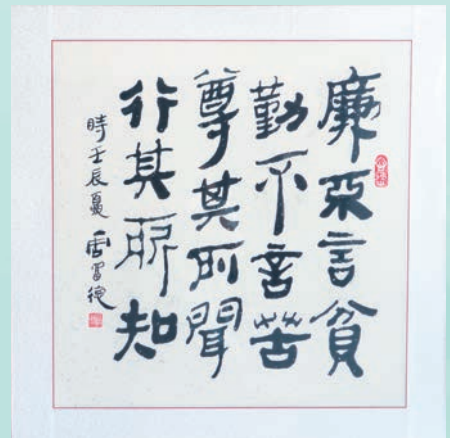 廉不言貧
勤不言苦
尊其所聞
行其所知
時壬辰夏 德